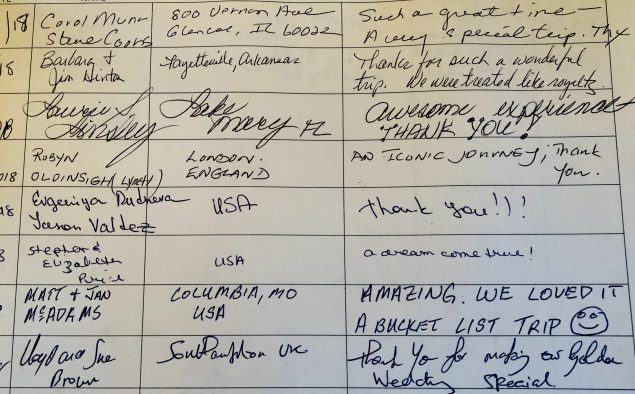 /18 Carol Munr 800 Vernon Ave Such a great time -
Steve Coors Glencoe, IL 60022 A very special trip. Thx
18 Barbara & Fayetteville, Arkansas Thanks for such a wonderful
Jim Hinton trip. We were treated like royalty.
Laurie S Lake awesome experience
Ainsley Mary FL THANK YOU!
ROBYN LONDON. AN ICONIC JOURNEY; Thank
018 OLDINSIGH (LYNCH) ENGLAND you.
18 Evgeniya USA Thank you!!!
Jason Valdez
Stephen & USA a dream come true!
Elizabeth
Price
MATT & JAN COLUMBIA, MO AMAZING. WE LOVED IT
McADAMS USA A BUCKET LIST TRIP
Lloyd and Sue Southampton UK Thank you for making our Golden
Brown Wedding Special.